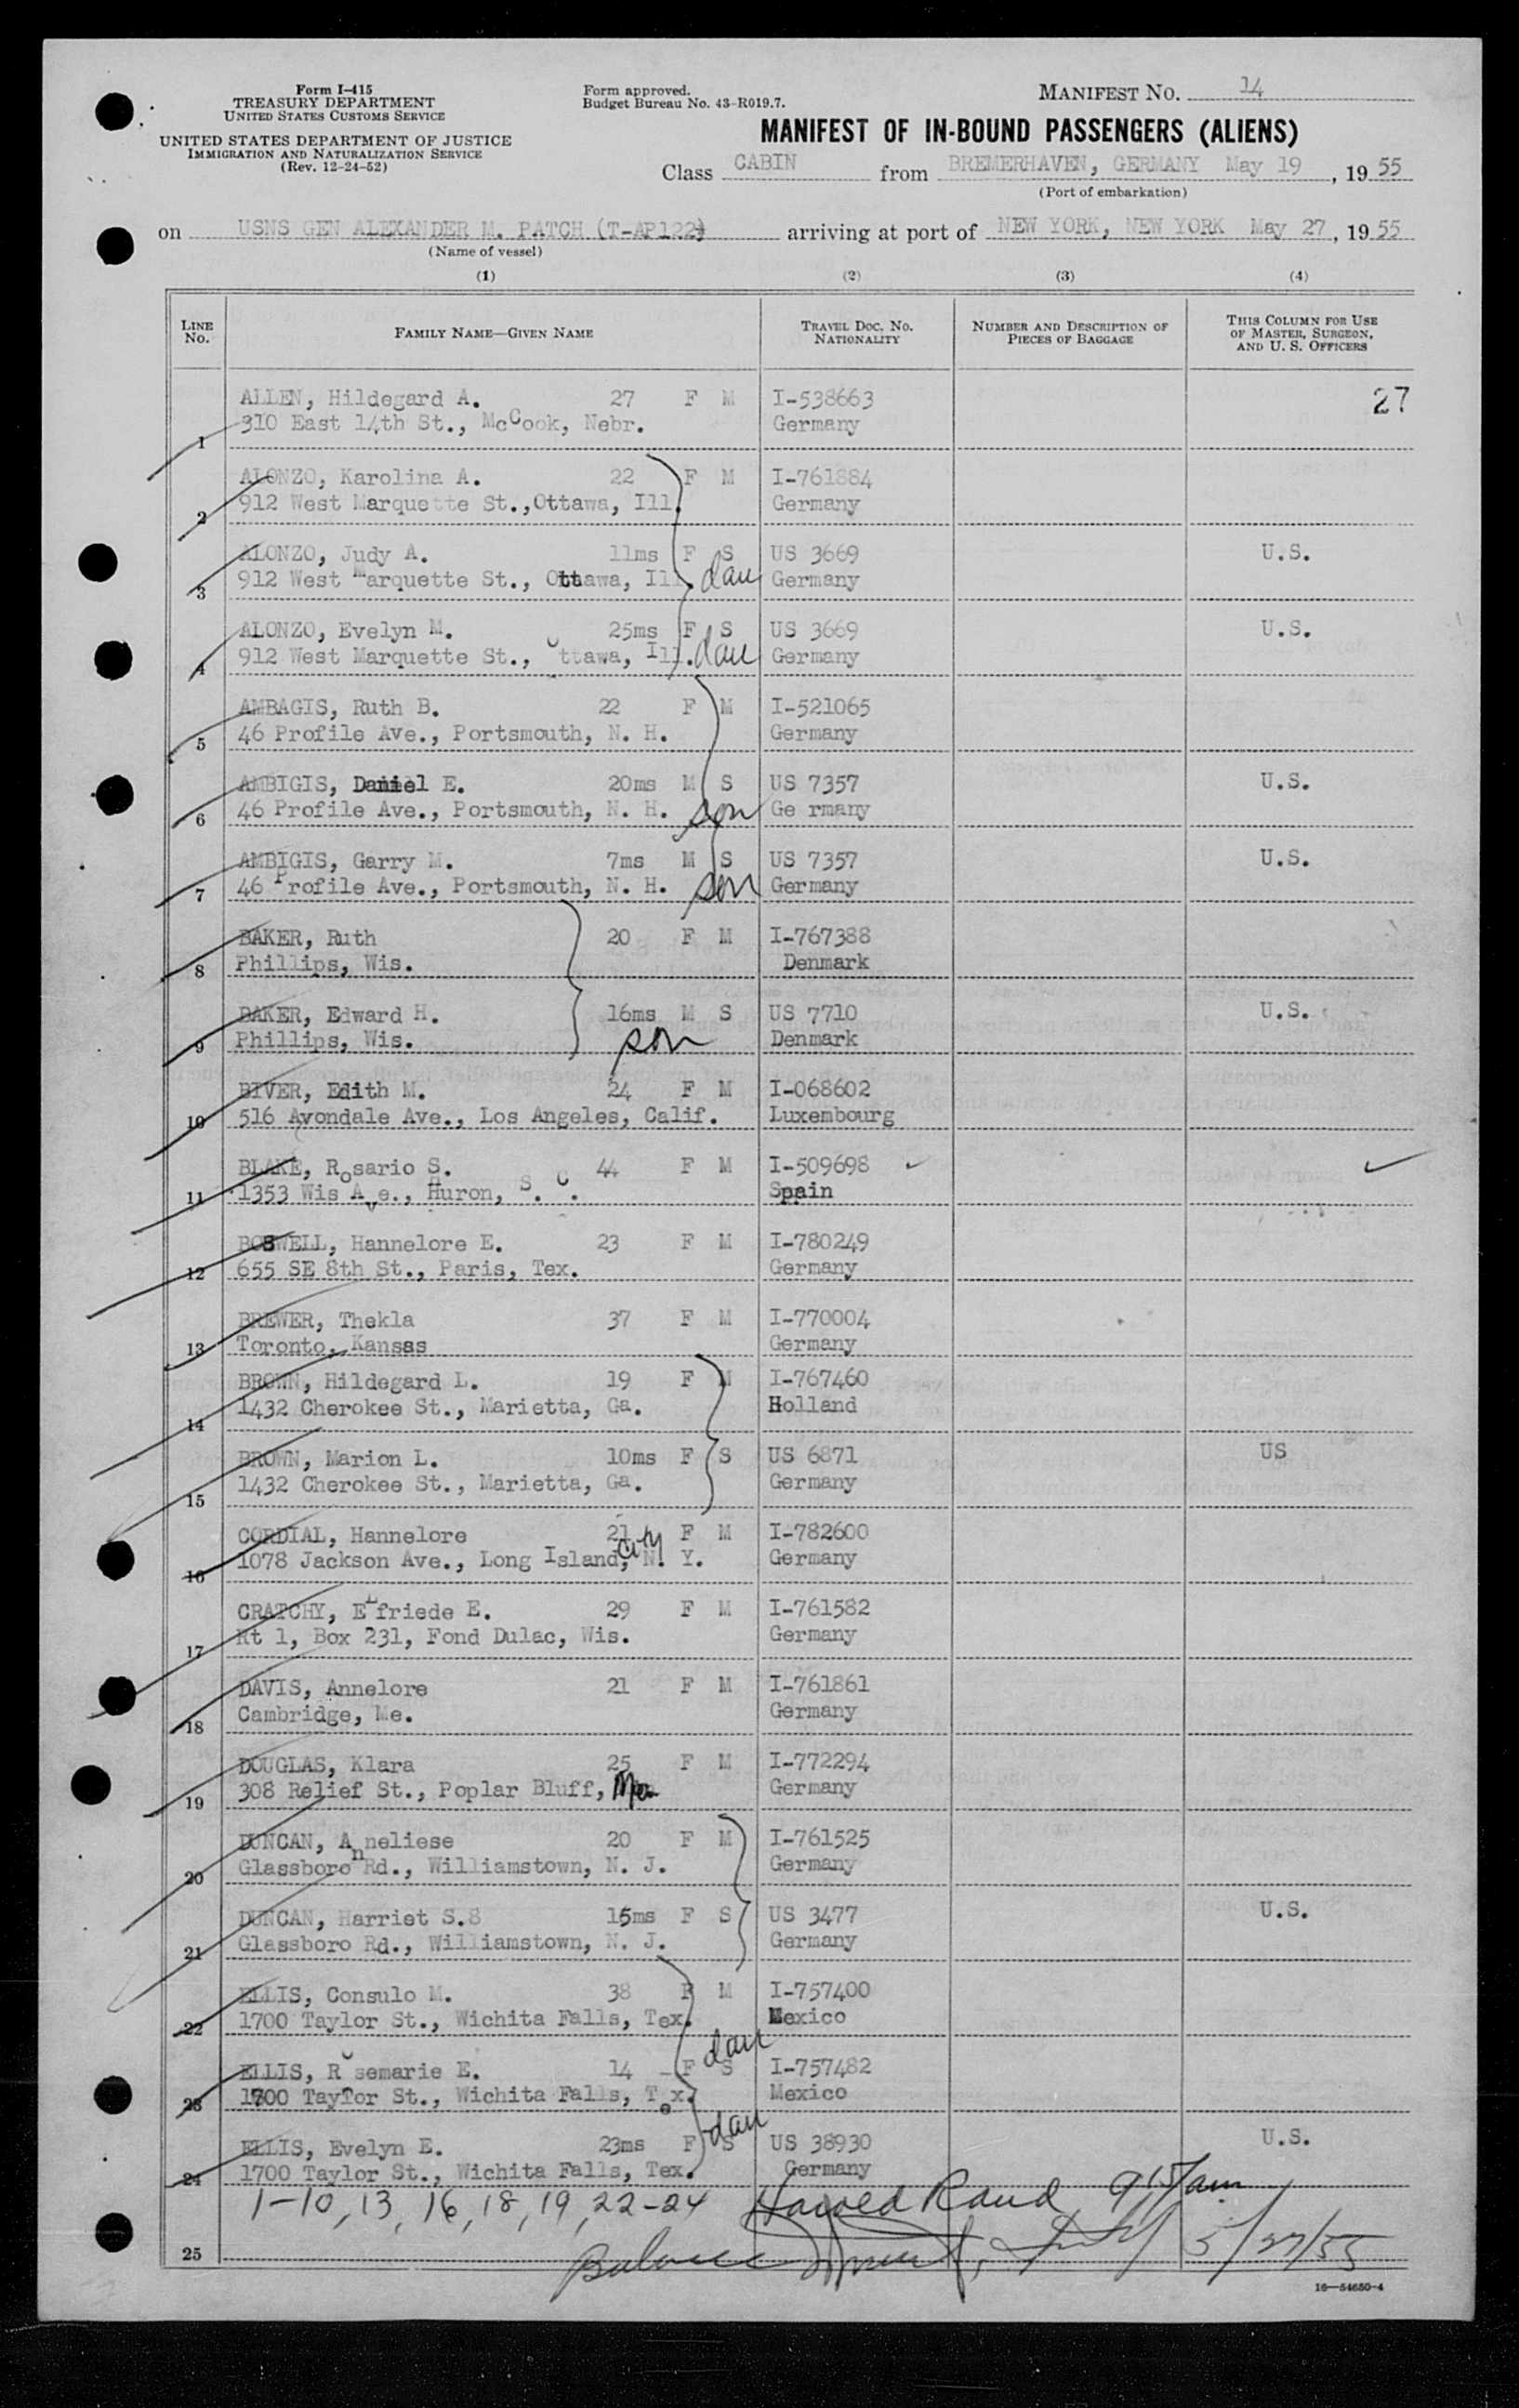 Form I-415
TREASURY DEPARTMENT
UNITED STATES CUSTOMS SERVICE
UNITED STATES DEPARTMENT OF JUSTICE
IMMIGRATION AND NATURALIZATION SERVICE
(Rev. 12-24-52)
Form approved.
Budget Bureau No. 43-R019.7.
MANIFEST NO. 14
MANIFEST OF IN-BOUND PASSENGERS (ALIENS)
Class CABIN from BREMERHAVEN, GERMANY May 19, 19 55
(Port of embarkation)
on USNS GEN ALEXANDER M. PATCH (T-AP122) arriving at port of NEW YORK, NEW YORK May 27, 19 55
(Name of vessel)
(1) (2) (3) (4)
LINE NO. FAMILY NAME—GIVEN NAME TRAVEL DOC. NO. NATIONALITY NUMBER AND DESCRIPTION OF PIECES OF BAGGAGE THIS COLUMN FOR USE OF MASTER, SURGEON, AND U. S. OFFICERS
ALLEN, Hildegard A. 27 F M I-538663 27
1 310 East 14th St., McCook, Nebr. Germany
ALONZO, Karolina A. 22 F M I-761884
2 912 West Marquette St.,Ottawa, Ill. Germany
ALONZO, Judy A. 11ms F S US 3669 U.S.
3 912 West Marquette St., Ottawa, Ill. dau Germany
ALONZO, Evelyn M. 25ms F S US 3669 U.S.
4 912 West Marquette St., Ottawa, Ill. dau Germany
AMBAGIS, Ruth B. 22 F M I-521065
5 46 Profile Ave., Portsmouth, N. H. Germany
AMBIGIS, Daniel E. 20ms M S US 7357 U.S.
6 46 Profile Ave., Portsmouth, N. H. son Ge rmany
AMBIGIS, Garry M. 7ms M S US 7357 U.S.
7 46 Profile Ave., Portsmouth, N. H. son Germany
BAKER, Ruth 20 F M I-767388
8 Phillips, Wis. Denmark
BAKER, Edward H. 16ms M S US 7710 U.S.
9 Phillips, Wis. son Denmark
BIVER, Edith M. 24 F M I-068602
10 516 Avondale Ave., Los Angeles, Calif. Luxembourg
BLAKE, Rosario S. 44 F M I-509698 ✓ ✓
11 1353 Wis Ave., Huron, S. C. Spain
BOSWELL, Hannelore E. 23 F M I-780249
12 655 SE 8th St., Paris, Tex. Germany
BREWER, Thekla 37 F M I-770004
13 Toronto, Kansas Germany
BROWN, Hildegard L. 19 F M I-767460
14 1432 Cherokee St., Marietta, Ga. Holland
BROWN, Marion L. 10ms F S US 6871 US
15 1432 Cherokee St., Marietta, Ga. Germany
CORDIAL, Hannelore 21 F M I-782600
16 1078 Jackson Ave., Long Island, City N. Y. Germany
CRATCHY, Elfriede E. 29 F M I-761582
17 Rt 1, Box 231, Fond Dulac, Wis. Germany
DAVIS, Annelore 21 F M I-761861
18 Cambridge, Me. Germany
DOUGLAS, Klara 25 F M I-772294
19 308 Relief St., Poplar Bluff, Germany
DUNCAN, Anneliese 20 F M I-761525
20 Glassboro Rd., Williamstown, N. J. Germany
DUNCAN, Harriet S.S 15ms F S US 3477 U.S.
21 Glassboro Rd., Williamstown, N. J. Germany
ELLIS, Consulo M. 38 F M I-757400
22 1700 Taylor St., Wichita Falls, Tex. Mexico
ELLIS, Rosemarie E. 14 F S dau I-757482
23 1700 Taylor St., Wichita Falls, Tex. Mexico
ELLIS, Evelyn E. 23ms F S dau US 38930 U.S.
24 1700 Taylor St., Wichita Falls, Tex. Germany
1-10, 13, 16, 18, 19, 22-24 Harold Rand 9 15 am
25 Balance 5/27/55
16—54650-4